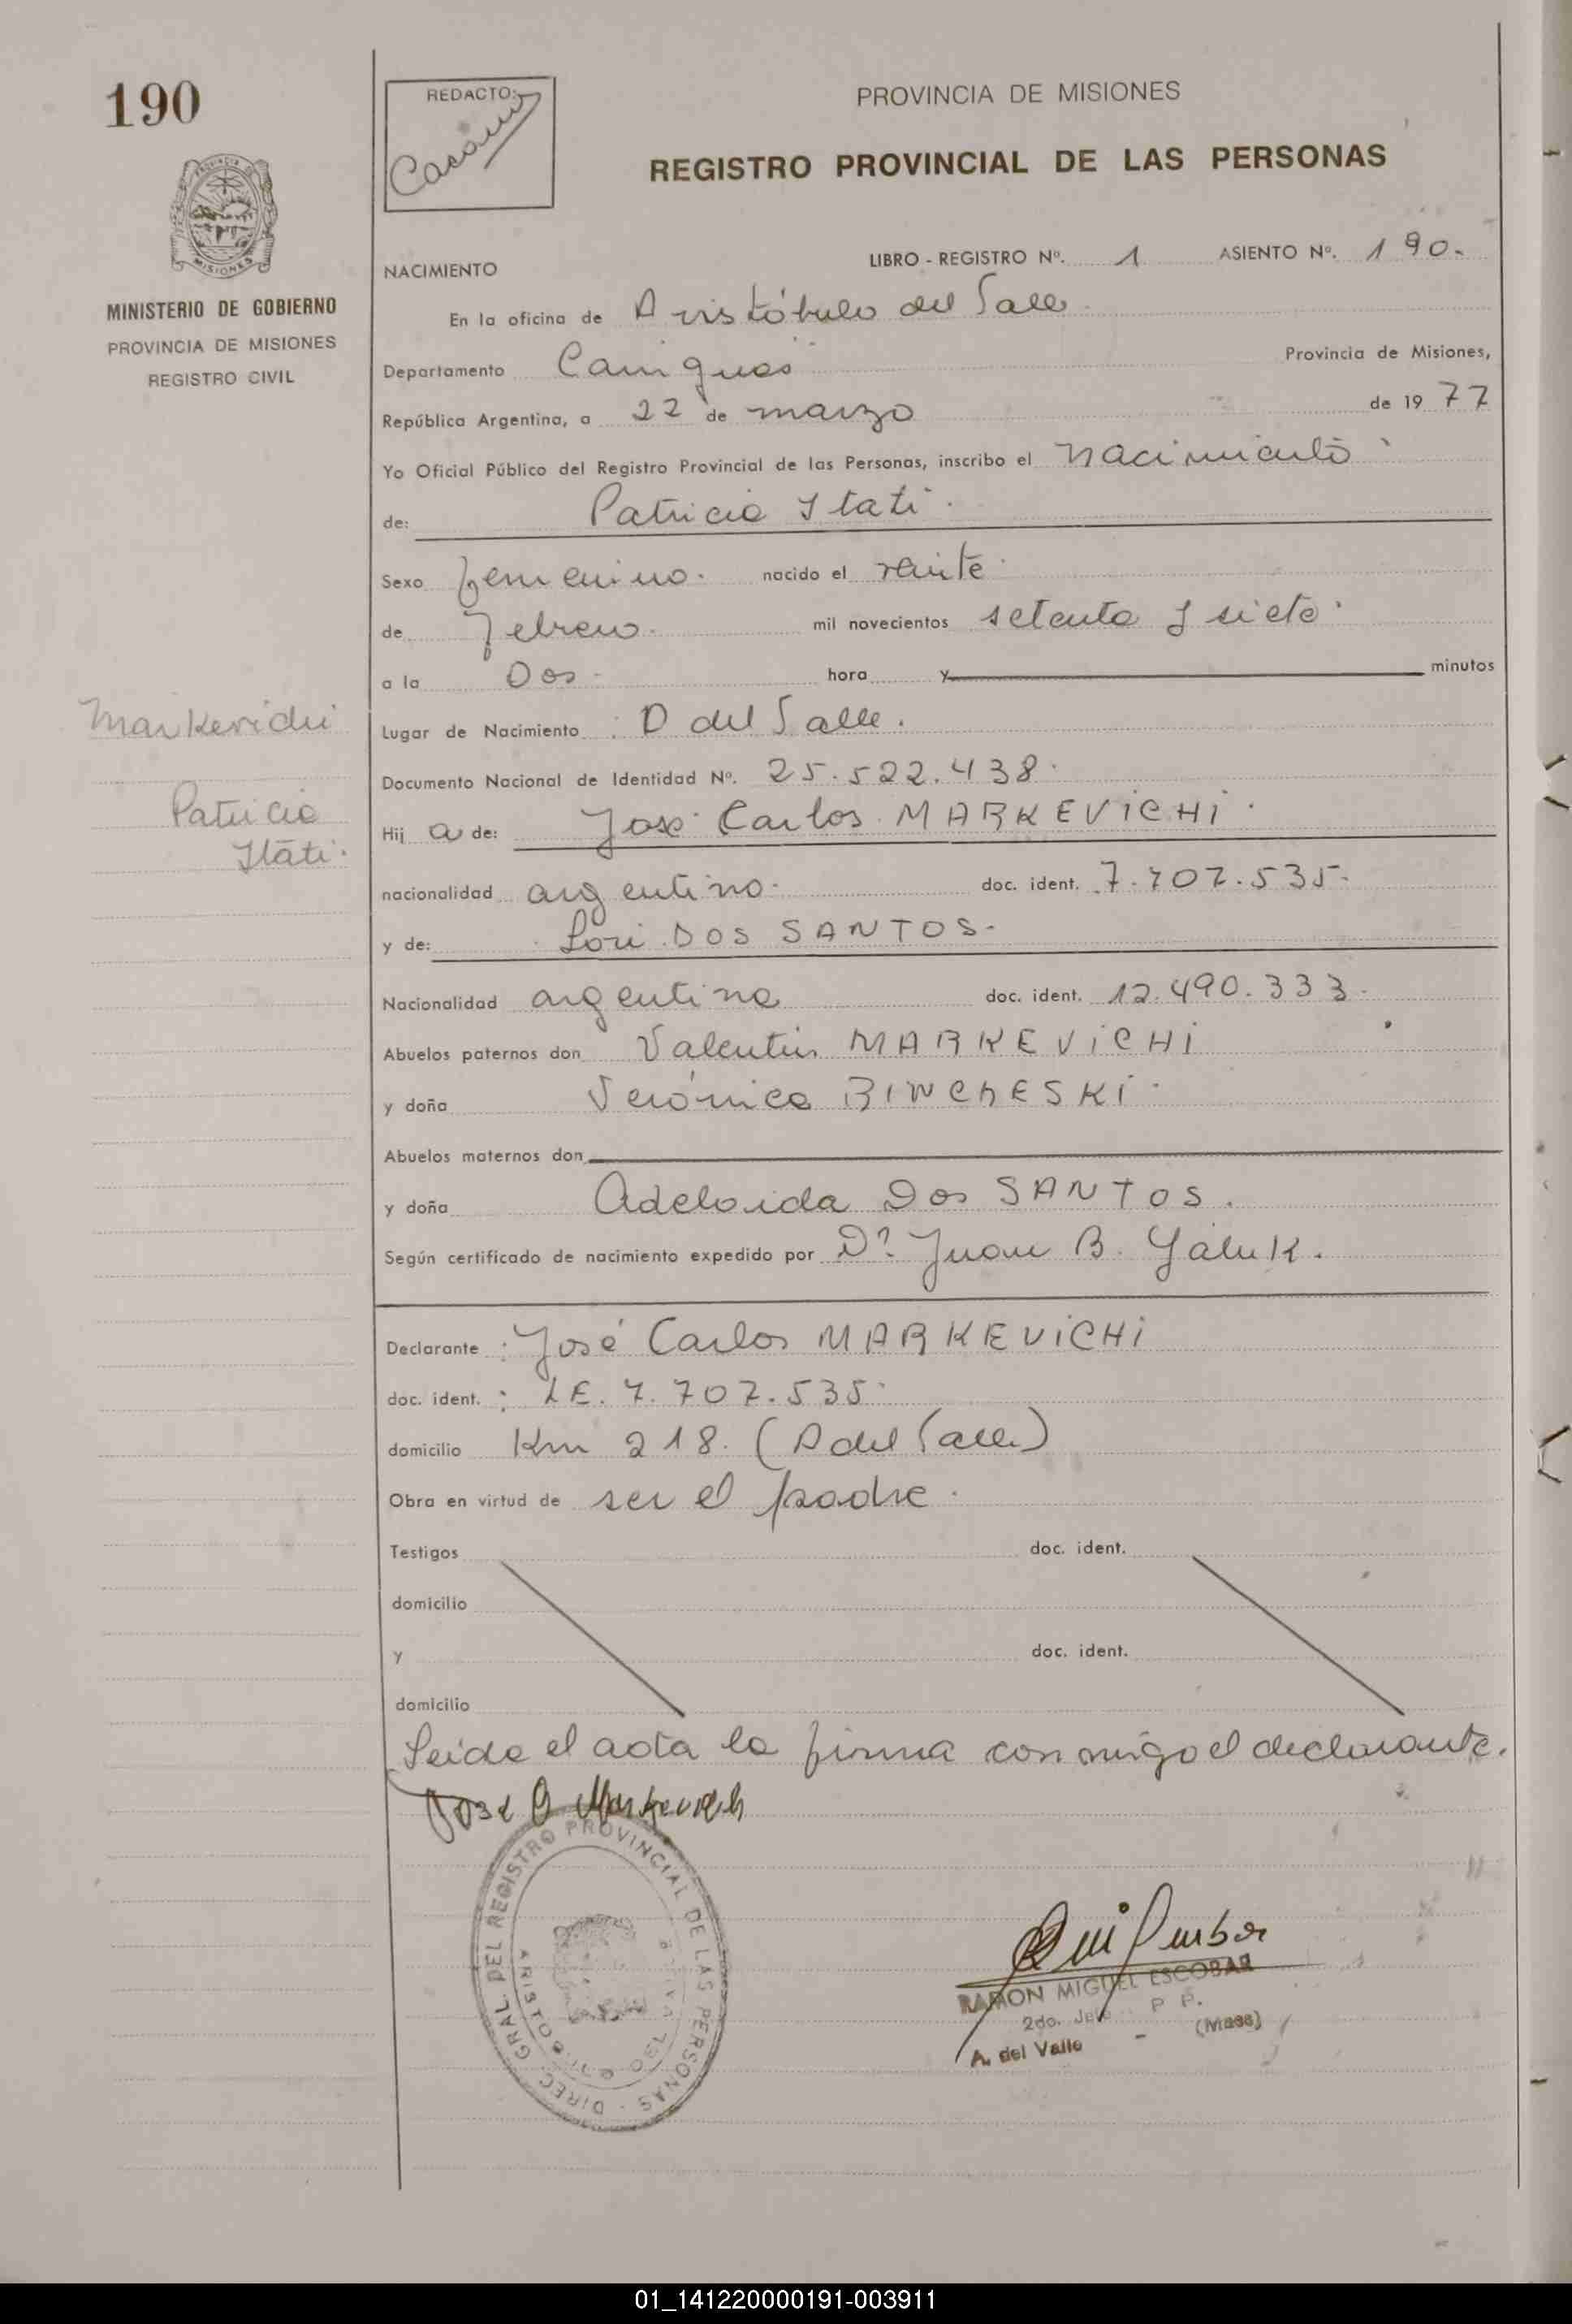 190
REDACTO:
PROVINCIA DE MISIONES
REGISTRO PROVINCIAL DE LAS PERSONAS
MISIONES
MINISTERIO DE GOBIERNO
PROVINCIA DE MISIONES
REGISTRO CIVIL
NACIMIENTO
LIBRO - REGISTRO Nº. 1 ASIENTO Nº. 190.
En la oficina de Aristóbulo del Valle
Departamento Cainguás
Provincia de Misiones,
República Argentina, a 22 de marzo de 1977
Yo Oficial Público del Registro Provincial de las Personas, inscribo el nacimiento
de: Patricia Itati
Sexo femenino. nacido el veinte
de Febrero mil novecientos setenta y siete
a la Dos hora y minutos
Lugar de Nacimiento : A del Valle.
Documento Nacional de Identidad Nº. 25.522.438
Markevichi
Patricia
Itati
Hij a de: José Carlos MARKEVICHI
nacionalidad argentino doc. ident. 7.707.535
y de: Lori DOS SANTOS
Nacionalidad argentina doc. ident. 12.490.333
Abuelos paternos don Valentin MARKEVICHI
y doña Verónica
Abuelos maternos don
y doña Adelaida Dos SANTOS.
Según certificado de nacimiento expedido por Dr. Juan B.
Declarante : José Carlos MARKEVICHI
doc. ident. : LE. 7.707.535
domicilio Km 218. (A del Valle)
Obra en virtud de ser el padre
Testigos doc. ident.
domicilio
y doc. ident.
domicilio
Leida el acta la firma conmigo el declarante.
José C Markevich
DIREC. GRAL. DEL REGISTRO PROVINCIAL DE LAS PERSONAS
ARISTOBULO DEL VALLE
RAMON MIGUEL ESCOBAR
2do. Jefe P P.
A. del Valle - (Mnes)
01_141220000191-003911